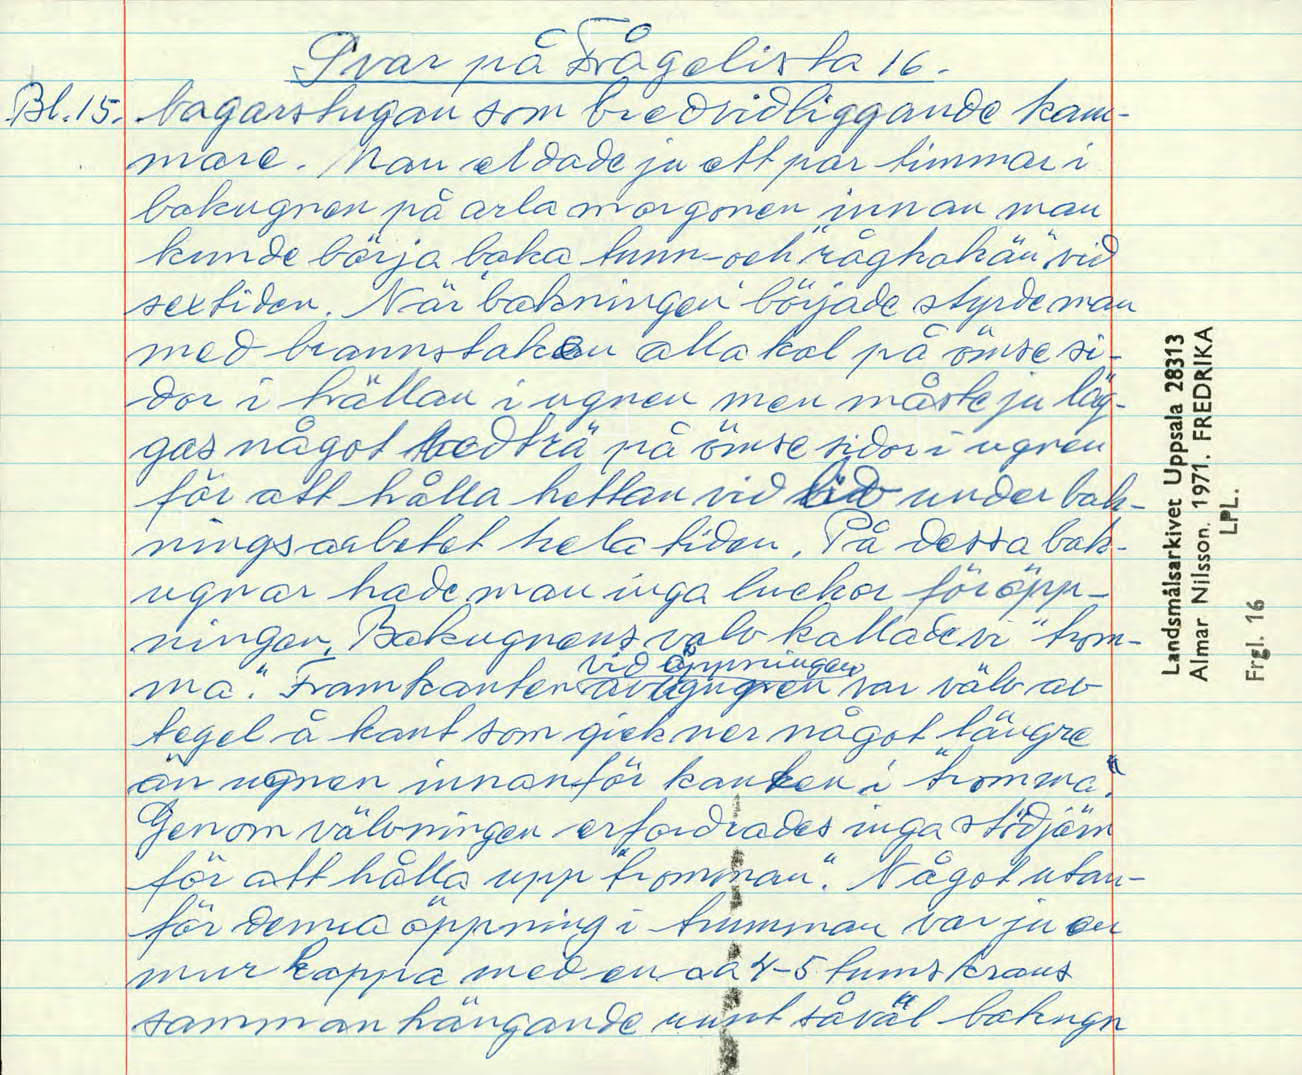 Svar på Frågelista 16.
Bl. 15. bagarstugan som bredvidliggande kam-
mare. Man eldade ju ett par timmar i
bakugnen på arla morgonen innan man
kunde börja baka tunn- och "rågkakän" vid
sextiden. När "bakningen" började styrde man
med brannstaken alla kol på ömse si-
dor i hällan i ugnen men måste ju läg-
gas något vedträ på ömse sidor i ugnen
för att hålla hettan vid liv under bak-
ningsarbetet hela tiden. På dessa bak-
ugnar hade man inga luckor för öpp-
ningen. Bakugnens valv kallade vi "trom-
ma". Framkanten vid öppningen var välv av
tegel å kant som gick ner något längre
än ugnen innanför kanten i "tromma".
Genom välvningen erfordrades inga stödjärn
för att hålla upp "tromman". Något utan-
för denna öppning i trumman var ju en
mur kappa med en ca 4-5 tums krans
sammanhängande runt såväl bakugn
Landsmålsarkivet Uppsala 28313
Almar Nilsson. 1971. FREDRIKA
LPL.
Frgl. 16